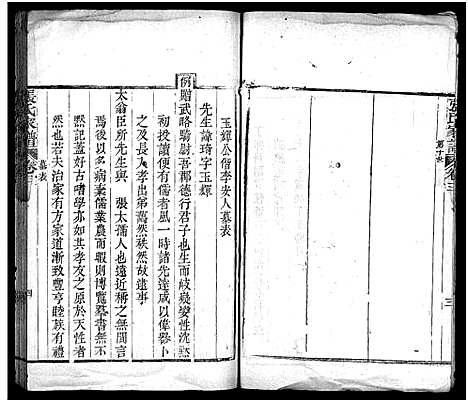 張氏家譜 卷三
第十世
三
玉輝公偕李安人墓表
先生諱琦字玉輝
例贈武略騎尉吾郡德行君子也生而岐嶷姿性沈默
初投讀便有儒者氣一時諸先達咸以偉器卜
之及長入孝出弟藹然秩然故逮事
太翁臣所先生與 張太孺人也遠近稱之無間言
焉後以多病棄儒業農而暇則博覽羣書無倦
然記蓋好古嗜學亦如其孝友之原於天性者
然也若夫治家有方家道漸致豐亨睦族有禮
張氏家譜 卷三
墓表
四